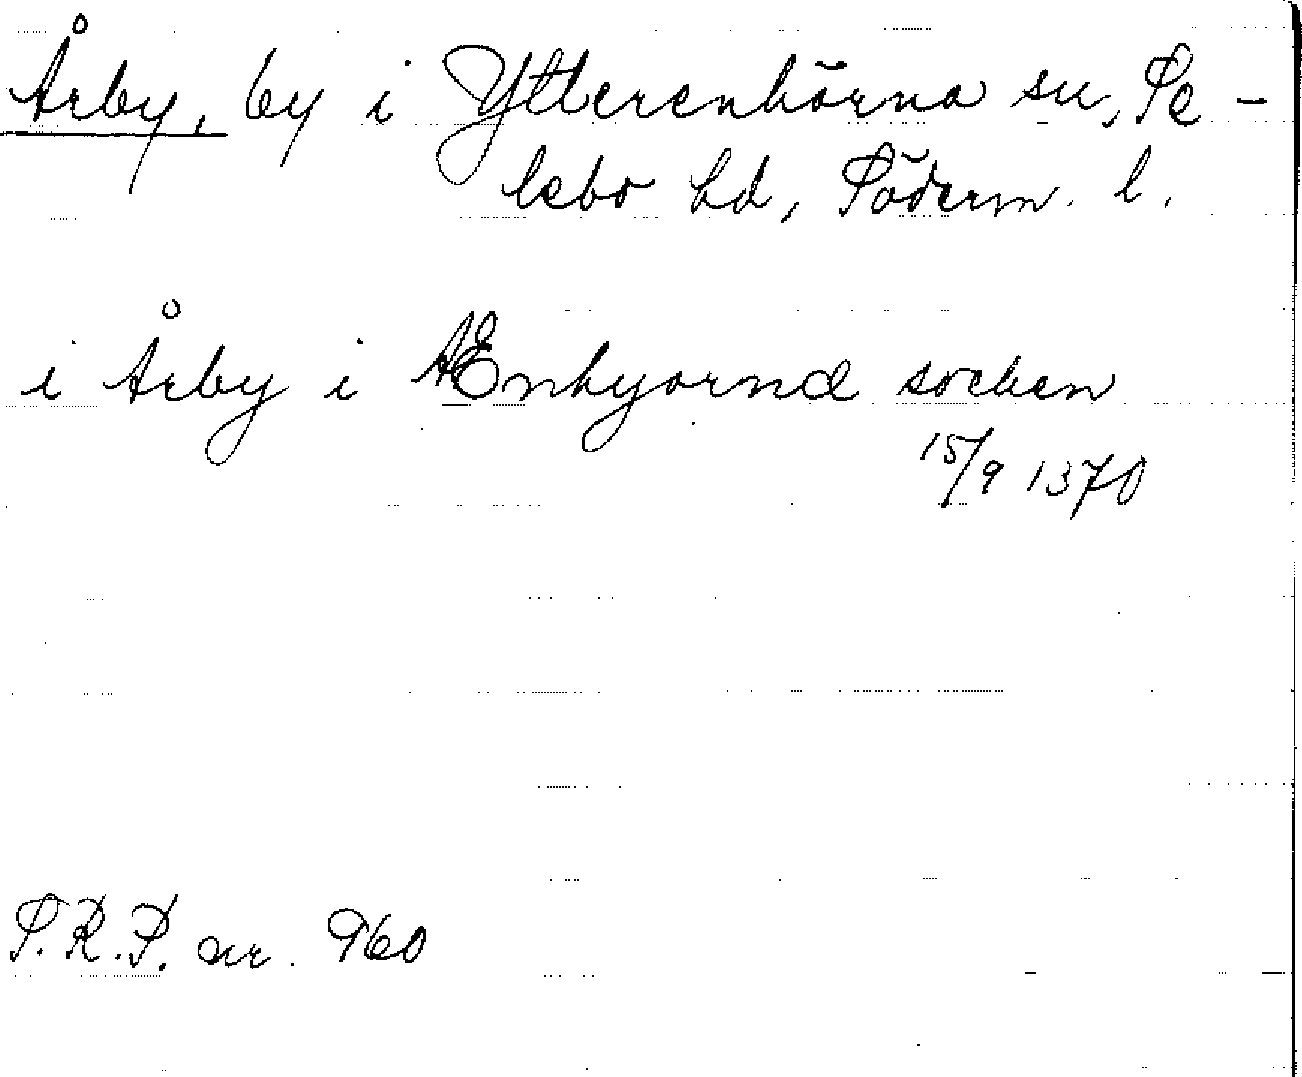 Årby, by i Ytterenhörna sn, Se-
lebo hd, Söderm. l.
i Årby i Ænhyørnæ sochen
15/9 1370
S.R.P. nr. 960